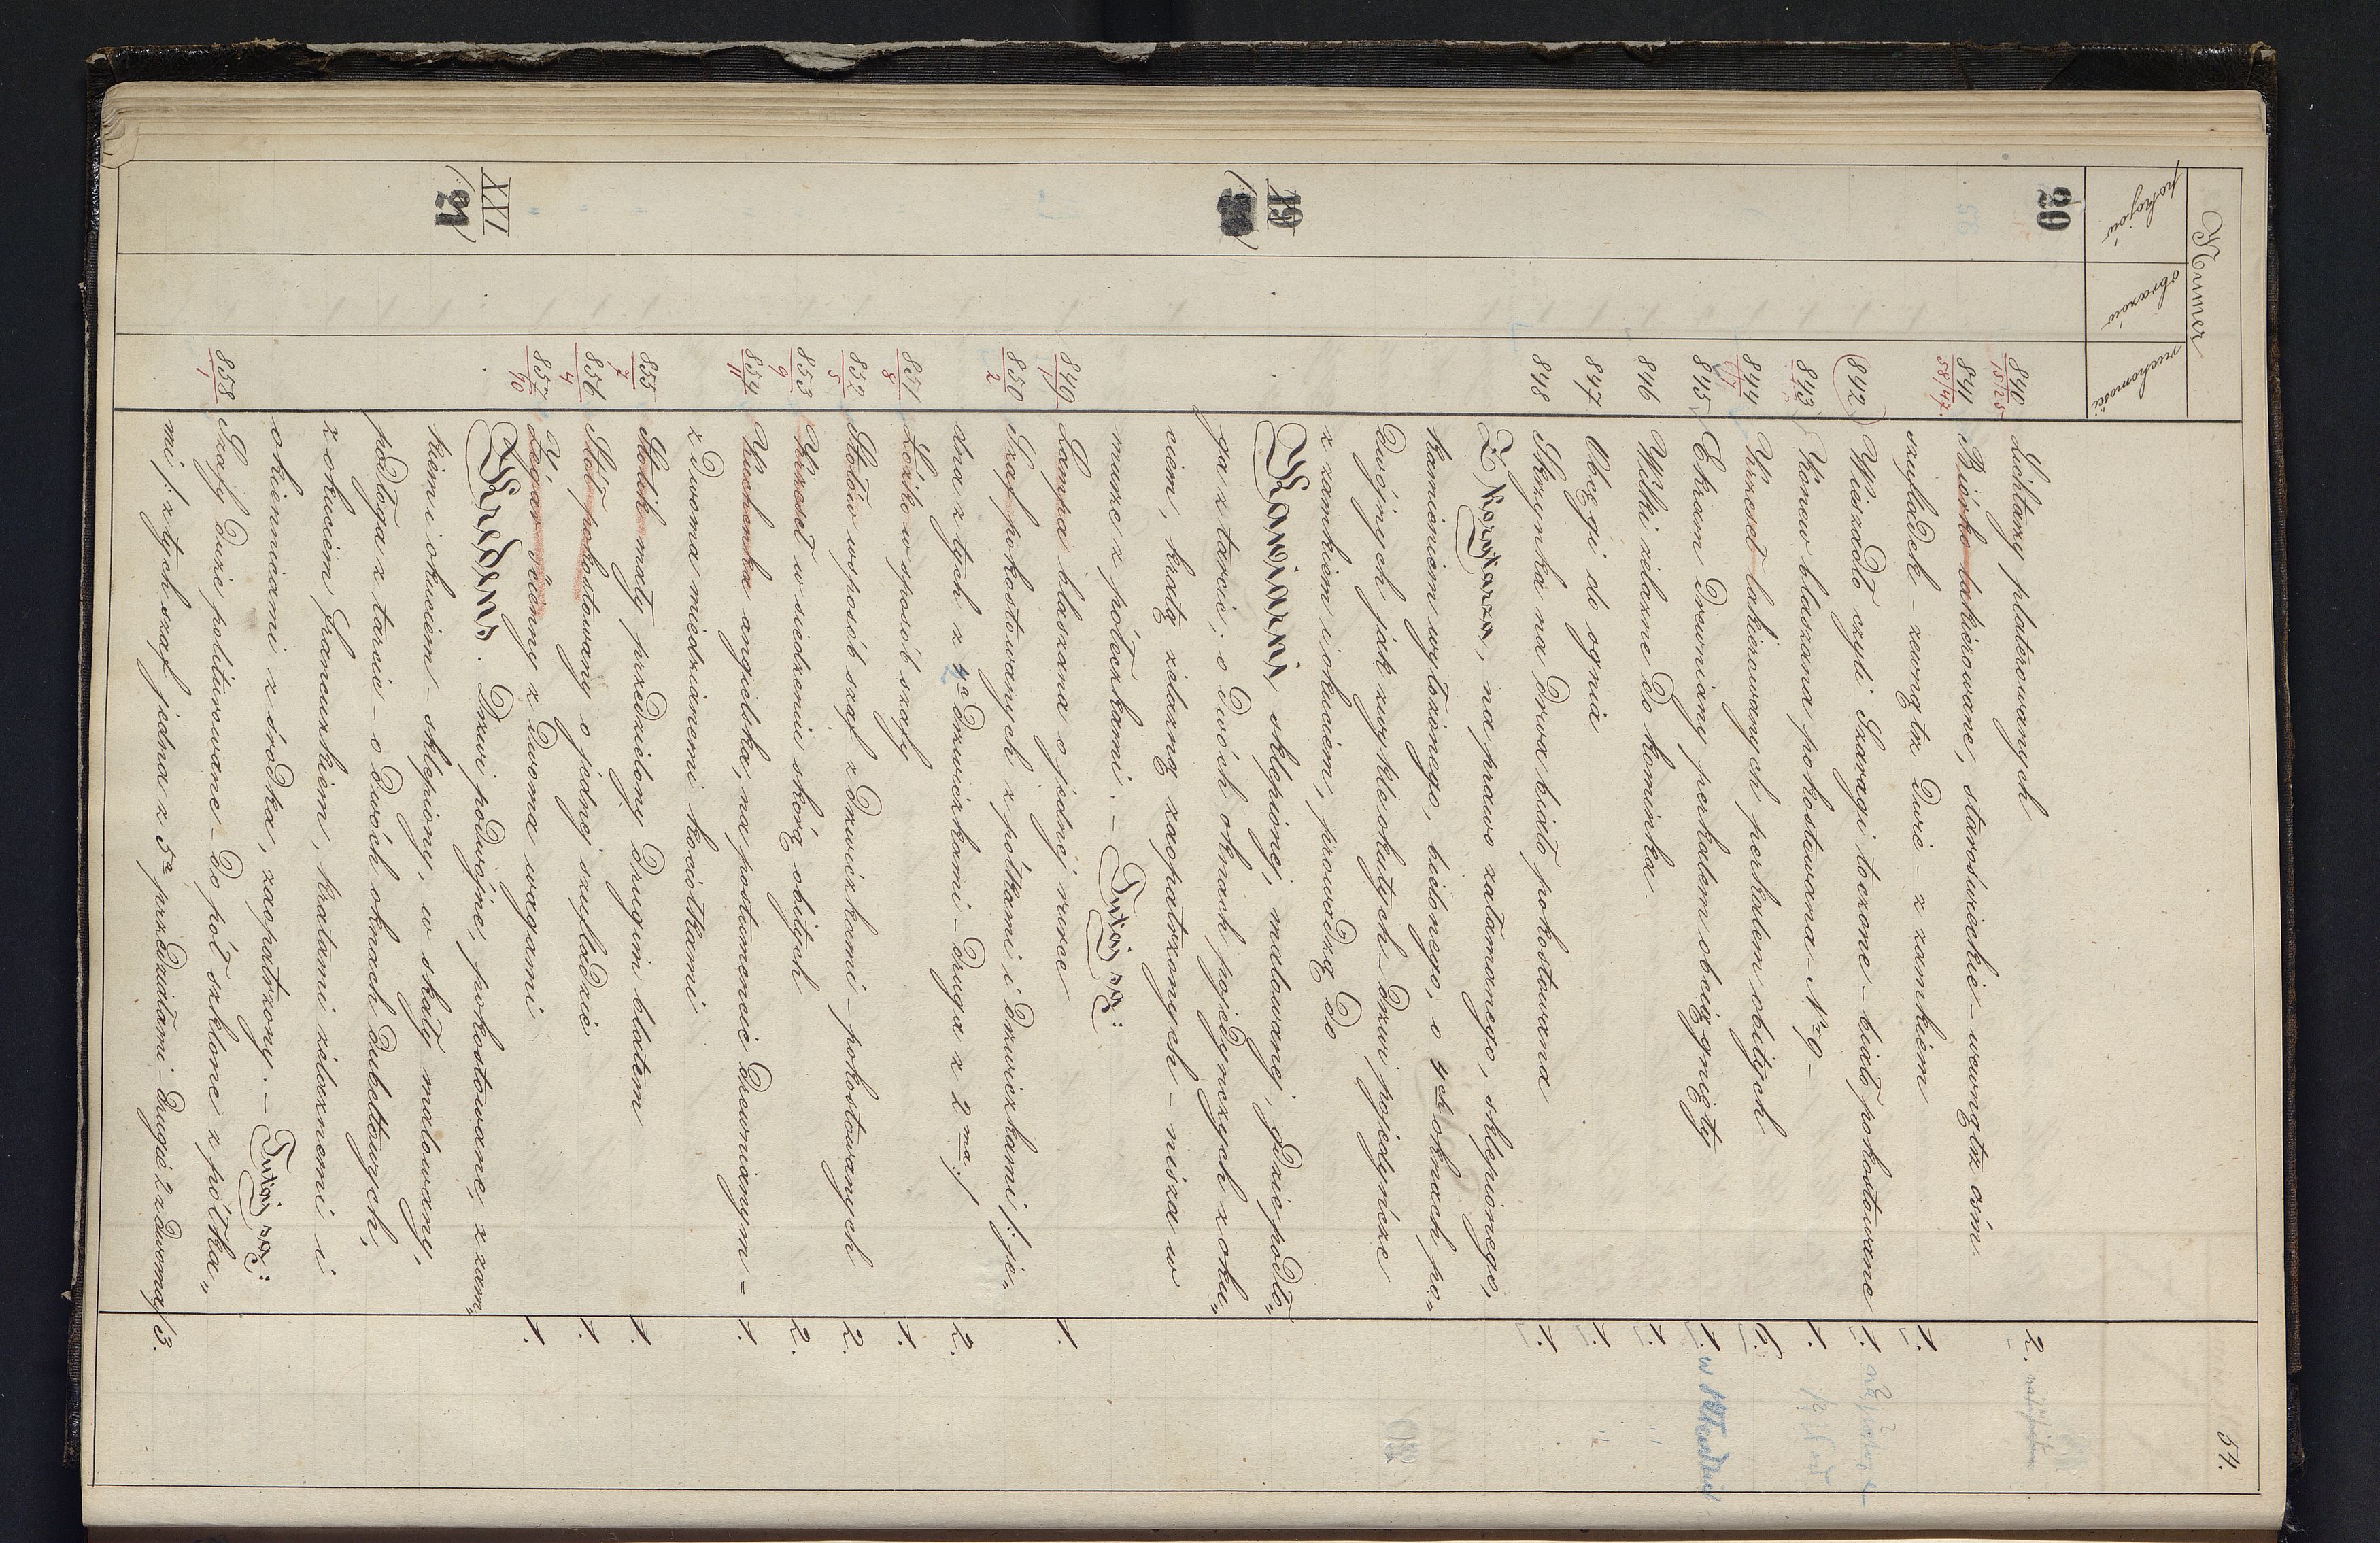 54.
Numer
pokojów obrazów ruchomości
20 840 15/25 Lichtarzy platerowanych 2.
841 58/42. Biórko lakierowane, staroświeckie – wewnątrz ośm
szufladek – zewnątrz dwie – z zamkiem 1.
842 Wieszadło czyli Szaragi toczone – biało pokostowane 1.
843 Konew blaszana pokostowana No 9 – 1.
844 Krzeseł lakierowanych perkalem obitych 6.
845 Ekran drewniany perkalem obciągnięty 1. w
846 Wilki żelazne do kominka 1. "
847 Obcęgi do ognia 1. "
848 Skrzynka na drwa biało pokostowana 1.
Z Korytarza, na prawo załamanego, sklepionego,
kamieniem wyłożonego, bielonego, o 4ch oknach po-
dwójnych jak zwykle okutych – drzwi pojedyńcze
z zamkiem i okuciem, prowadzą do
19 Kawiarni, sklepionej, malowanej, gdzie podło„
ga z tarcic; o dwóch oknach pojedynczych z oku„
ciem, kratą żelazną zaopatrzonych – nisza w
murze z półeczkami. – Tutaj są:
849 Lampa blaszana o jednej rurce 1.
850 2 Szaf pokostowanych z półkami i drzwiczkami /: je„
dna z tych z drzwiczkami – druga z 2ma :/ 2.
851 8 Łóżko w sposób szafy 1.
852 5 Stołów w sposób szaf z drzwiczkami – pokostowanych 2.
853 9 Krzeseł w siedzeniu skórą obitych 2.
854 11 Kuchenka angielska, na postumencie drewnianym =
z dwoma miedzianemi kociołkami 1.
855 7 Stolik mały przedzielony drugim blatem 1.
856 4 Stół pokostowany o jednej szufladzie 1.
857 10 Zégar ścienny z dwoma wagami 1.
XXI 21 Kredens. Drzwi podwójne, pokostowane, z zam„
kiem i okuciem – sklepiony, w skały malowany,
podłoga z tarcic – o dwóch oknach dubeltowych,
z okuciem francuzkiem, kratami żelaznemi i
okiennicami z środka, zaopatrzony. – Tutaj są:
858 1 Szafy duże politurowane – do pół szklone z półka„
mi /: z tych szaf jedna z 5ą przedziałami – drugie 2 z dwoma :/ 3.